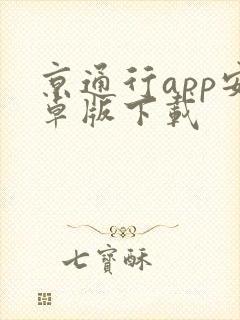 京通行app安
卓版下载
七寶酥